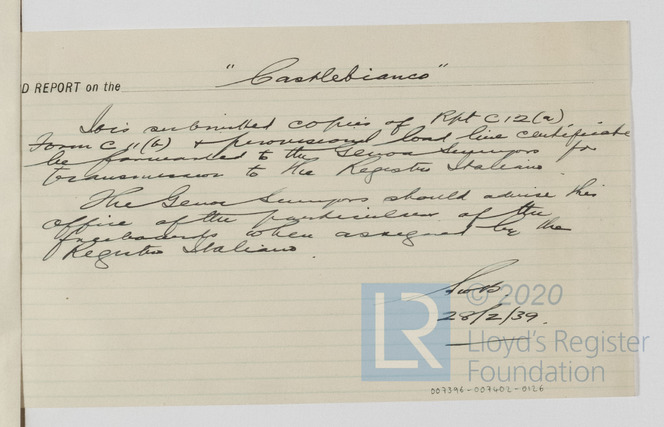 D REPORT on the "Castlebianco"
It is submitted copies of Rpt C12(a)
Form C11(b) & provisional load line certificate
be forwarded to the Genoa Surveyors for
transmission to the Registro Italiano.
The Genoa Surveyors should advise this
office of the particulars of the
freeboards when assigned by the
Registro Italiano.
28/2/39.
© 2020
LR
Lloyd's Register
Foundation
007396-007402-0126